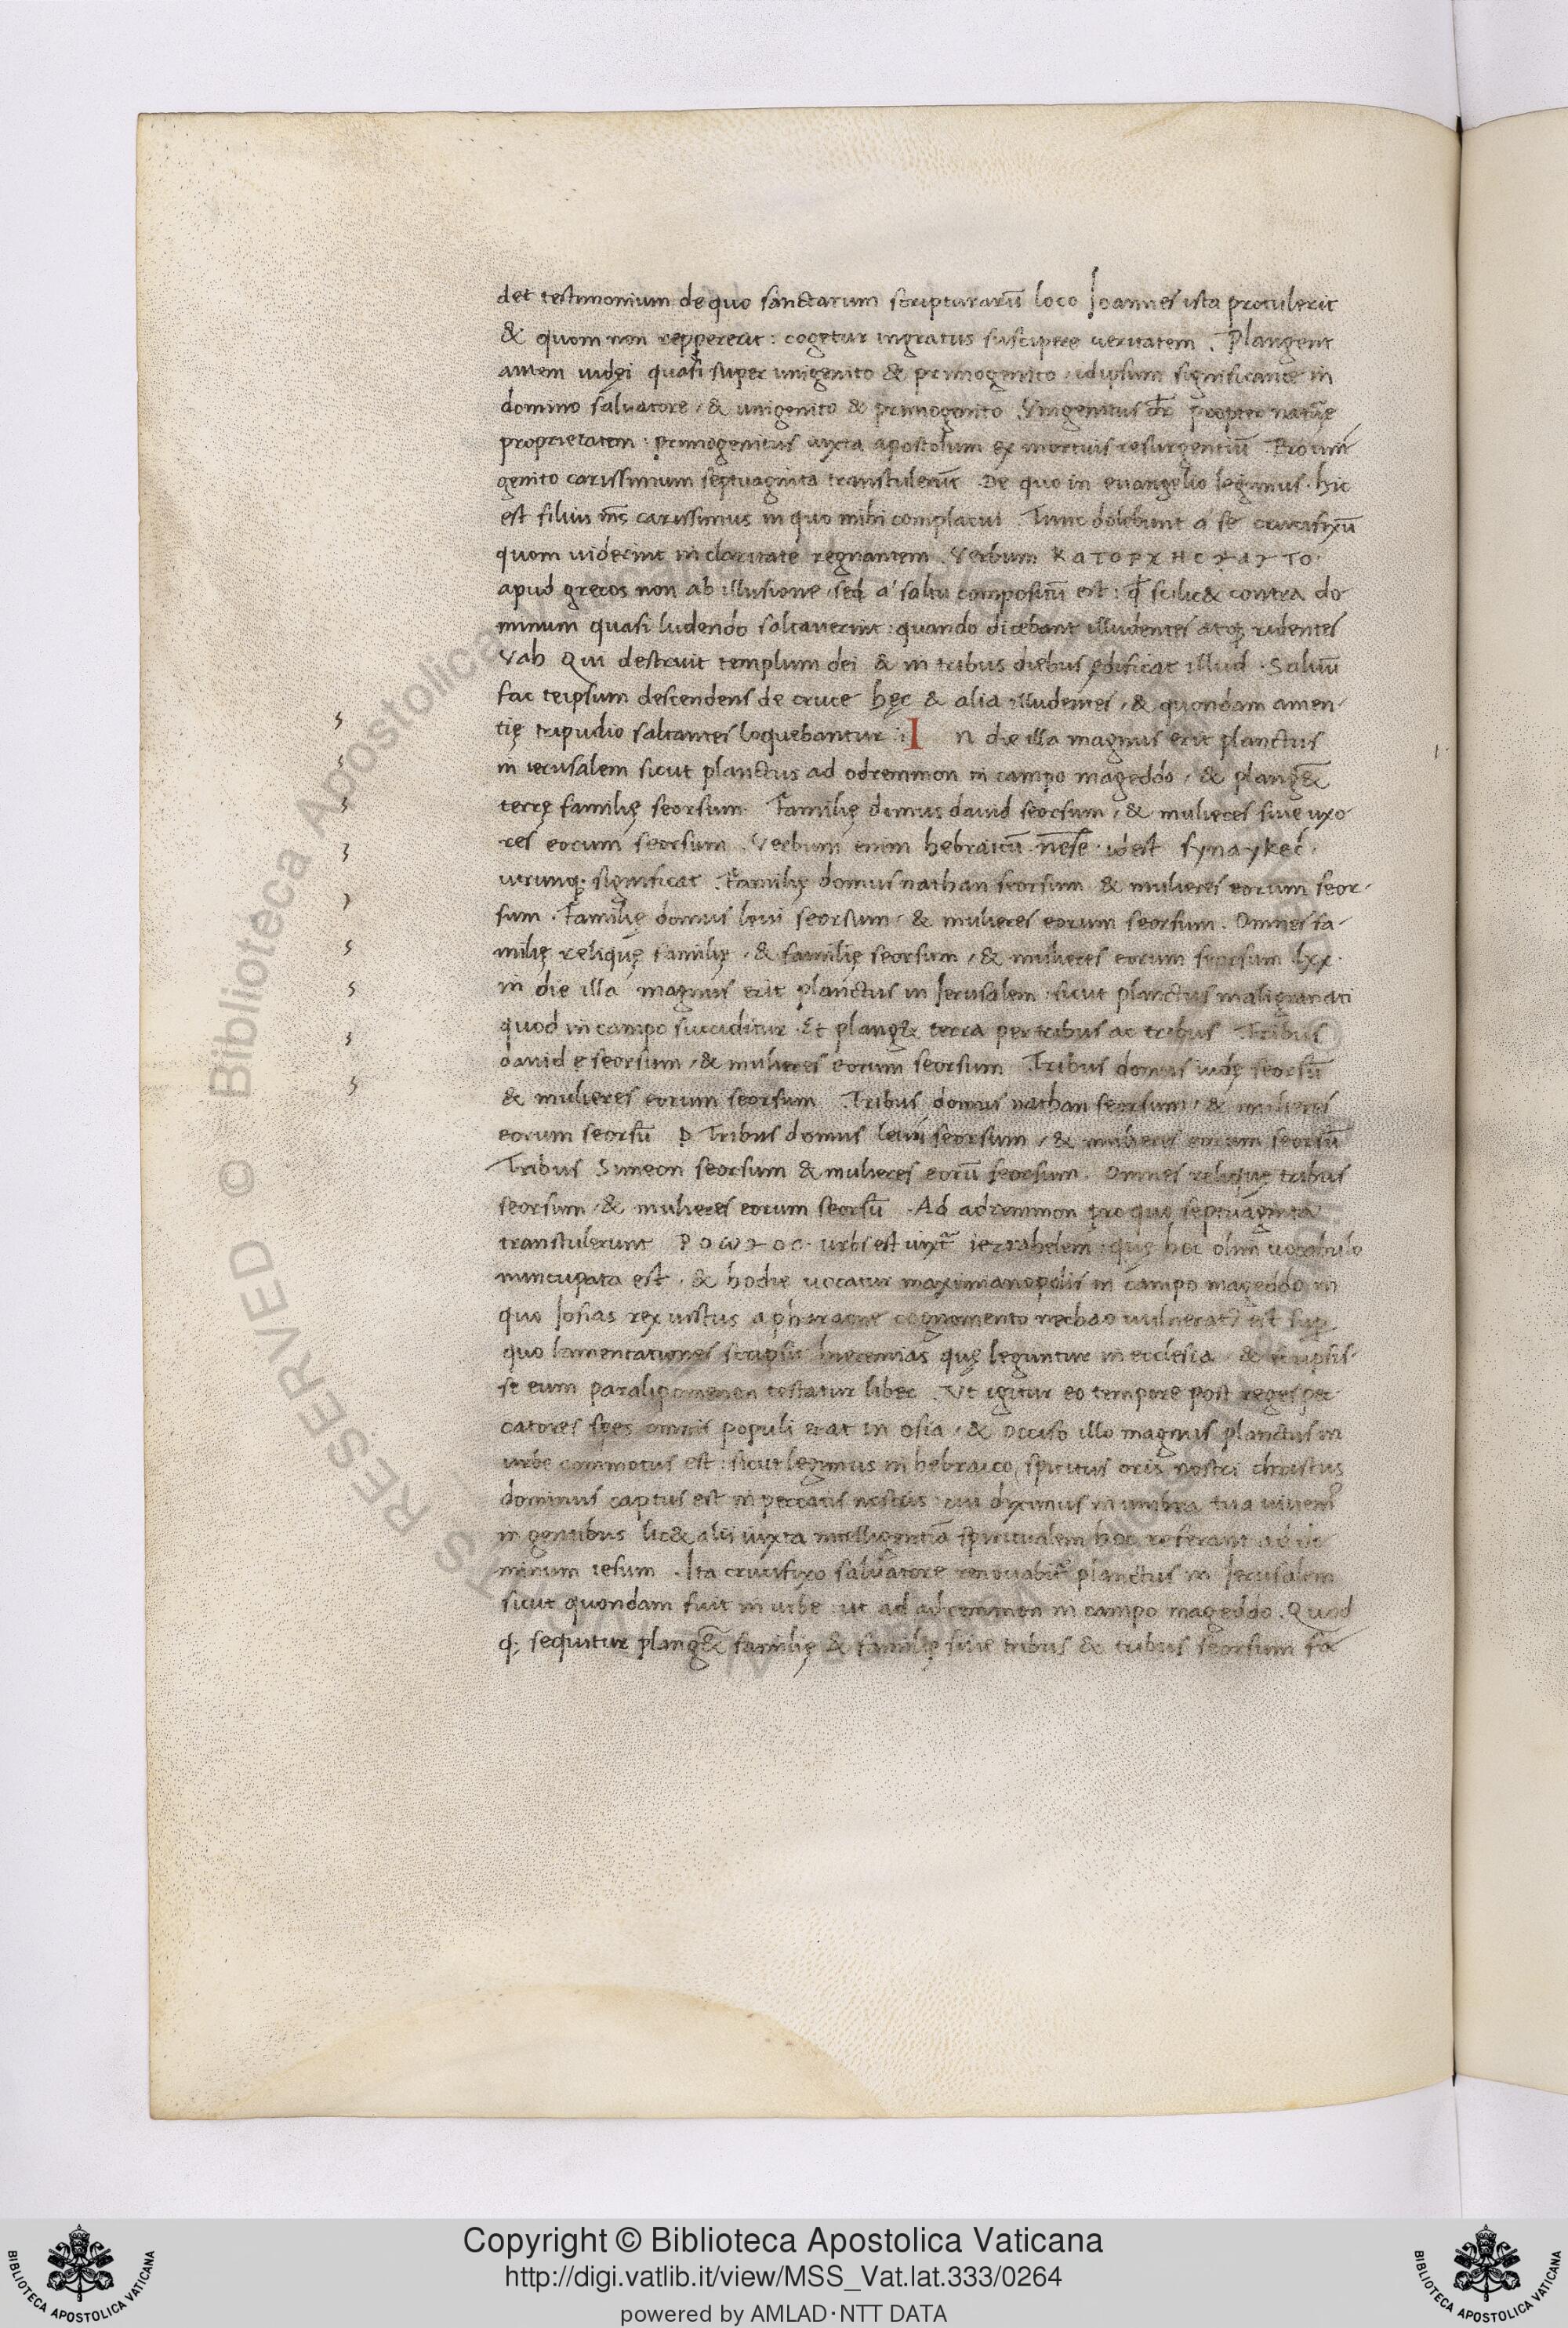 det testimonium de quo sanctarum scripturarū loco Ioannes ista protulerit
& quom non reppererit: cogetur ingratus suscipere ueritatem. Plangent
autem iudęi quasi super unigenito & primogenito, idipsum significante in
domino saluatore, & unigenito & primogenito. Vnigenitus dr̄ propter naturę
proprietatem: primogenitus iuxta apostolum ex mortuis resurgentiū. Pro uni
genito carissimum septuaginta transtulerūt. De quo in euangelio legimus. hic
est filius m̄s carissimus in quo mihi complacui. Tunc dolebunt a se crucifixū
quom uiderint in claritate regnantem. Verbum
apud grecos non ab illusione, sed a saltu compositū est: scilic& contra do
minum quasi ludendo saltauerint: quando dicebant illudentes atq; ridentes
Vah Qui destruit templum dei & in tribus diebus ędificat illud. Saluū
fac teipsum descendens de cruce hęc & alia illudentes, & quondam amen-
tię tripudio saltantes loquebantur: In die illa magnus erit planctus
in ierusalem sicut planctus ad odremmon in campo mageddo, & plang&̄
terrę familię seorsum. Familię domus dauid seorsum, & mulieres siue uxo
res eorum seorsum. Verbum enim hebraicū nese. idest
utrunq; significat. Familię domus nathan seorsum & mulieres eorum seor-
sum. Familię domus leui seorsum, & mulieres eorum seorsum. Omnes fa-
milię reliquę familię, & familię seorsum, & mulieres eorum seorsum lxx.
in die illa magnus erit planctus in Ierusalem sicut planctus maligranati
quod in campo succiditur. Et plang& terra per tribus ac tribus Tribus
dauid ę seorsum, & mulieres eorum seorsum Tribus domus iudę seorsū
& mulieres eorum seorsum Tribus domus nathan seorsum, & mulieres
eorum seorsū Tribus domus leui seorsum, & mulieres eorum seorsū
Tribus Simeon seorsum & mulieres eorū seorsum. Omnes reliquę tribus
seorsum, & mulieres eorum seorsū. Ad adremmon pro quo septuaginta
transtulerunt urbs est iuxta iezrahelem: quę hoc olim uocabulo
nuncupata est, & hodie uocatur maximianopolis in campo mageddo in
quo Iosias rex uictus a pharaone cognomento nechao uulnerat' est sup
quo lamentationes scripsit hieremias quę leguntur in ecclesia, & scripsis-
se eum paralipomenon testatur liber. Vt igitur eo tempore post reges pec
catores spes omnis populi erat in osia, & occiso illo magnus planctus in
urbe commotus est: sicut legimus in hebraico, spiritus oris nostri christus
dominus captus est in peccatis nostris: cui diximus in umbra tua uiuem'
in gentibus lic& alii iuxta intelligentiā spiritualem hoc referant ad do
minum iesum. Ita crucifixo saluatore renouabit' planctus in Ierusalem
sicut quondam fuit in urbe ut ad adremmon in campo mageddo. Quod
q; sequitur plang&̄ familię & familię siue tribus & tribus seorsum fa
Copyright © Biblioteca Apostolica Vaticana
http://digi.vatlib.it/view/MSS_Vat.lat.333/0264
powered by AMLAD·NTT DATA
BIBLIOTECA APOSTOLICA VATICANA
BIBLIOTECA APOSTOLICA VATICANA